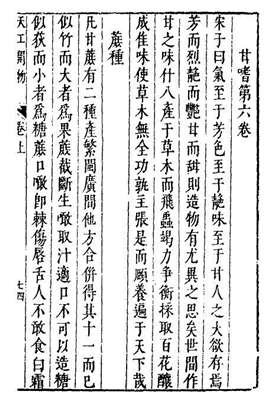 甘嗜第六卷
宋子曰氣至于芳色至于靘味至于甘人之大欲存焉
芳而烈靘而艷甘而甜則造物有尤異之思矣世間作
甘之味什八產于草木而飛蟲竭力爭衡採取百花釀
成佳味使草木無全功孰主張是而頤養遍于天下哉
蔗種
凡甘蔗有二種產繁閩廣間他方合併得其十一而已
似竹而大者爲果蔗截斷生噉取汁適口不可以造糖
似荻而小者爲糖蔗口噉卽棘傷唇舌人不敢食白霜
天工開物 卷上 七四